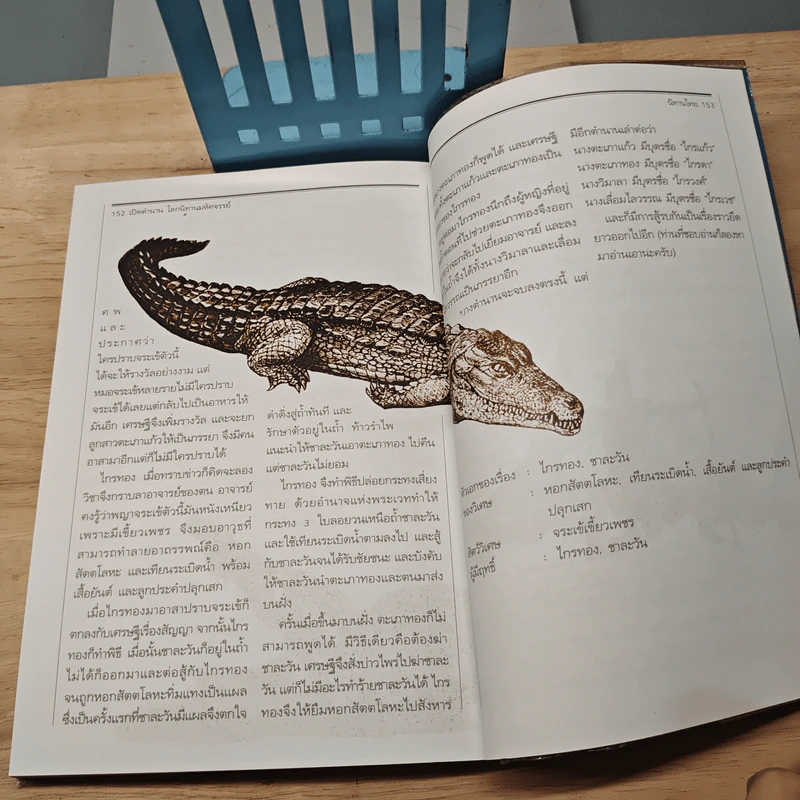 152 เปิดตำนาน โลกนิทานมหัศจรรย์
ศ พ
แ ล ะ
ประกาศว่า
ใครปราบจระเข้ตัวนี้
ได้จะให้รางวัลอย่างงาม แต่
หมอจระเข้หลายรายไม่มีใครปราบ
จระเข้ได้เลยแต่กลับไปเป็นอาหารให้
มันอีก เศรษฐีจึงเพิ่มรางวัล และจะยก
ลูกสาวตะเภาแก้วให้เป็นภรรยา จึงมีคน
อาสามาอีกแต่ก็ไม่มีใครปราบได้
ไกรทอง เมื่อทราบข่าวก็คิดจะลอง
วิชาจึงกราบลาอาจารย์ของตน อาจารย์
คงรู้ว่าพญาจระเข้ตัวนี้มันหนังเหนียว
เพราะมีเขี้ยวเพชร จึงมอบอาวุธที่
สามารถทำลายอาถรรพณ์คือ หอก
สัตตโลหะ และเทียนระเบิดน้ำ พร้อม
เสื้อยันต์ และลูกประคำปลุกเสก
เมื่อไกรทองมาอาสาปราบจระเข้ก็
ตกลงกับเศรษฐีเรื่องสัญญา จากนั้นไกร
ทองก็ทำพิธี เมื่อนั้นชาละวันก็อยู่ในถ้ำ
ไม่ได้ก็ออกมาและต่อสู้กับไกรทอง
จนถูกหอกสัตตโลหะทิ่มแทงเป็นแผล
ซึ่งเป็นครั้งแรกที่ชาละวันมีแผลจึงตกใจ
ดำดิ่งสู่ถ้ำทันที และ
รักษาตัวอยู่ในถ้ำ ท้าวรำไพ
แนะนำให้ชาละวันเอาตะเภาทอง ไปคืน
แต่ชาละวันไม่ยอม
ไกรทอง จึงทำพิธีปล่อยกระทงเสี่ยง
ทาย ด้วยอำนาจแห่งพระเวททำให้
กระทง 3 ใบลอยวนเหนือถ้ำชาละวัน
และใช้เทียนระเบิดน้ำตามลงไป และสู้
กับชาละวันจนได้รับชัยชนะ และบังคับ
ให้ชาละวันนำตะเภาทองและตนมาส่ง
บนฝั่ง
ครั้นเมื่อขึ้นมาบนฝั่ง ตะเภาทองก็ไม่
สามารถพูดได้ มีวิธีเดียวคือต้องฆ่า
ชาละวัน เศรษฐีจึงสั่งบ่าวไพรไปฆ่าชาละ
วัน แต่ก็ไม่มีอะไรทำร้ายชาละวันได้ ไกร
ทองจึงให้ยืมหอกสัตตโลหะไปสังหาร
นิทานไทย 153
ตะเภาทองก็พูดได้ และเศรษฐี
ตะเภาแก้วและตะเภาทองเป็น
ไกรทอง
มาไกรทองนึกถึงผู้หญิงที่อยู่
ตอนที่ไปช่วยตะเภาทองจึงออก
ว่าจะกลับไปเยี่ยมอาจารย์ และลง
ถ้ำจึงได้ทั้งนางวิมาลาและเลื่อม
วรรณเป็นภรรยาอีก
บางตำนานจะจบลงตรงนี้ แต่
มีอีกตำนานเล่าต่อว่า
นางตะเภาแก้ว มีบุตรชื่อ "ไกรแก้ว"
นางตะเภาทอง มีบุตรชื่อ "ไกรดา"
นางวิมาลา มีบุตรชื่อ "ไกรวงศ์"
นางเลื่อมไลวรรณ มีบุตรชื่อ "ไกรเวช"
และก็มีการสู้รบกันเป็นเรื่องราวยืด
ยาวออกไปอีก (ท่านที่ชอบอ่านก็ลองหา
มาอ่านเอานะครับ)
ตัวเอกของเรื่อง : ไกรทอง, ชาละวัน
ของวิเศษ : หอกสัตตโลหะ, เทียนระเบิดน้ำ, เสื้อยันต์ และลูกประคำ
ปลุกเสก
สัตว์วิเศษ : จระเข้เขี้ยวเพชร
ผู้มีฤทธิ์ : ไกรทอง, ชาละวัน